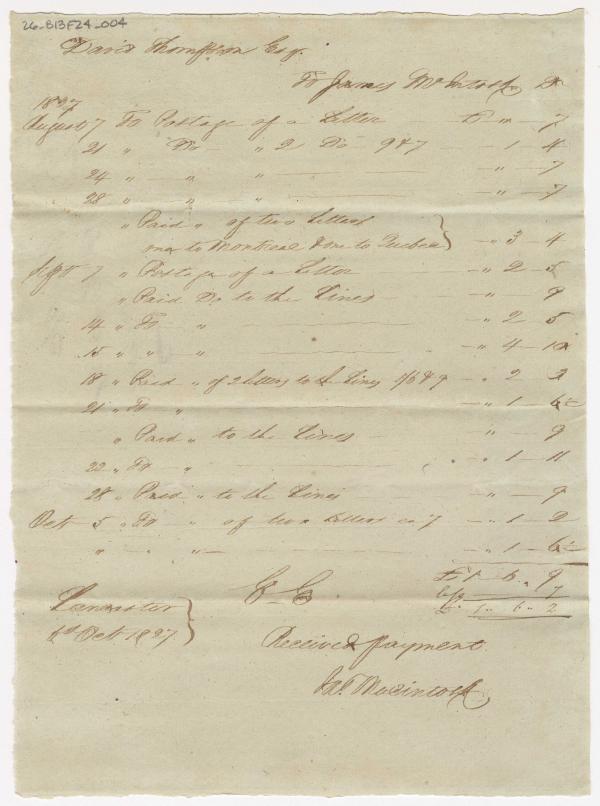 26-B13F24-004
David Thompson Esq.
To James McIntosh Dr
1827
August 7 To Postage of a Letter — " — 7
21 " Do " 2 Do 9 & 7 — " 1 — 4
24 " " " — " — 7
28 " " " — " — 7
" Paid " of two Letters
one to Montreal & one to Quebec } — " 3 — 4
Sept 7 " Postage of a Letter — " 2 — 5
" Paid Do to the Lines — " — 9
14 " To " — " 2 — 5
15 " " " — " 4 — 10
18 " Paid " of 2 letters to the Lines 1/6 & 9 — " 2 — 3
21 " To " — " 1 — 6
" Paid " to the Lines — " — 9
22 " To " — " 1 — 11
28 " Paid " to the Lines — " — 9
Oct 5 " To " of two Letters ea 7 — " 1 — 2
" " " — " 1 — 6
£ 1 " 6 " 9
7
£ 1 " 6 " 2
E E
Lancaster
Oct 1827 }
Received payment
Jas. McIntosh